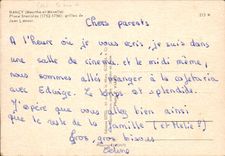 NANCY (Meurthe-et-Moselle)
Place Stanislas (1752-1756) : grilles de
Jean Lamour.
Chers parents
A l'heure où je vous écris, je suis dans
une salle de cinéma, et le midi même,
nous sommes allés manger à la cafétaria
avec Edwige. Le temps est splendide.
J'espère que vous allez bien ainsi
que le reste de la famille (et Hélie ?)
Gros, gros bisous
Hélène